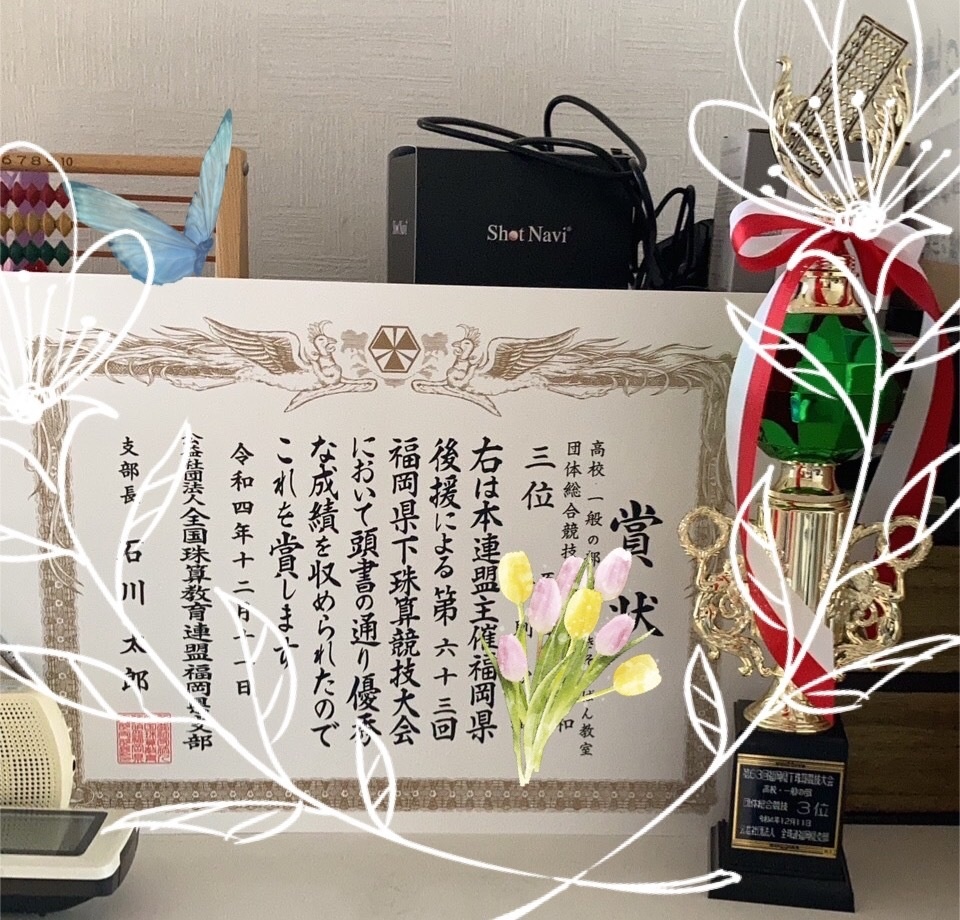 678910
Shot Navi
賞状
高校・一般の部
団体総合競技
三位
ん教室
和
右は本連盟主催福岡県
後援による第六十三回
福岡県下珠算競技大会
において頭書の通り優秀
な成績を収められたので
これを賞します
令和四年十二月十一日
公益社団法人全国珠算教育連盟福岡県支部
支部長 石川太郎
第63回福岡県下珠算競技大会
高校・一般の部
団体総合競技 3位
令和4年12月11日
公益社団法人 全珠連福岡県支部